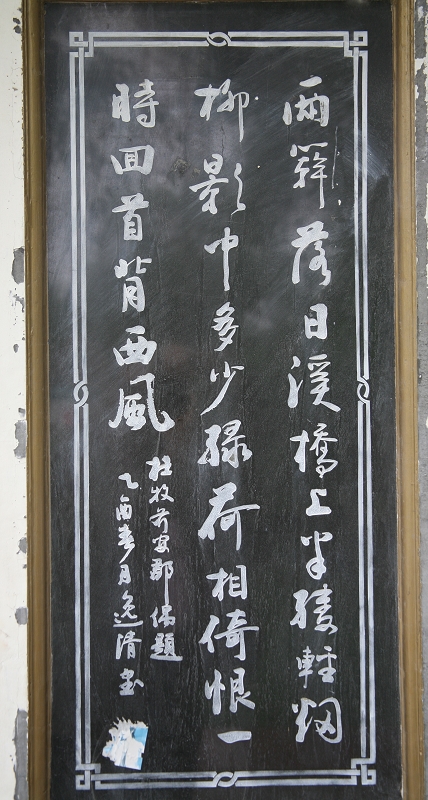 兩竿落日溪橋上半縷輕烟
柳影中多少緑荷相倚恨一
時回首背西風
杜牧齊安郡偶題
乙酉春月逸清書